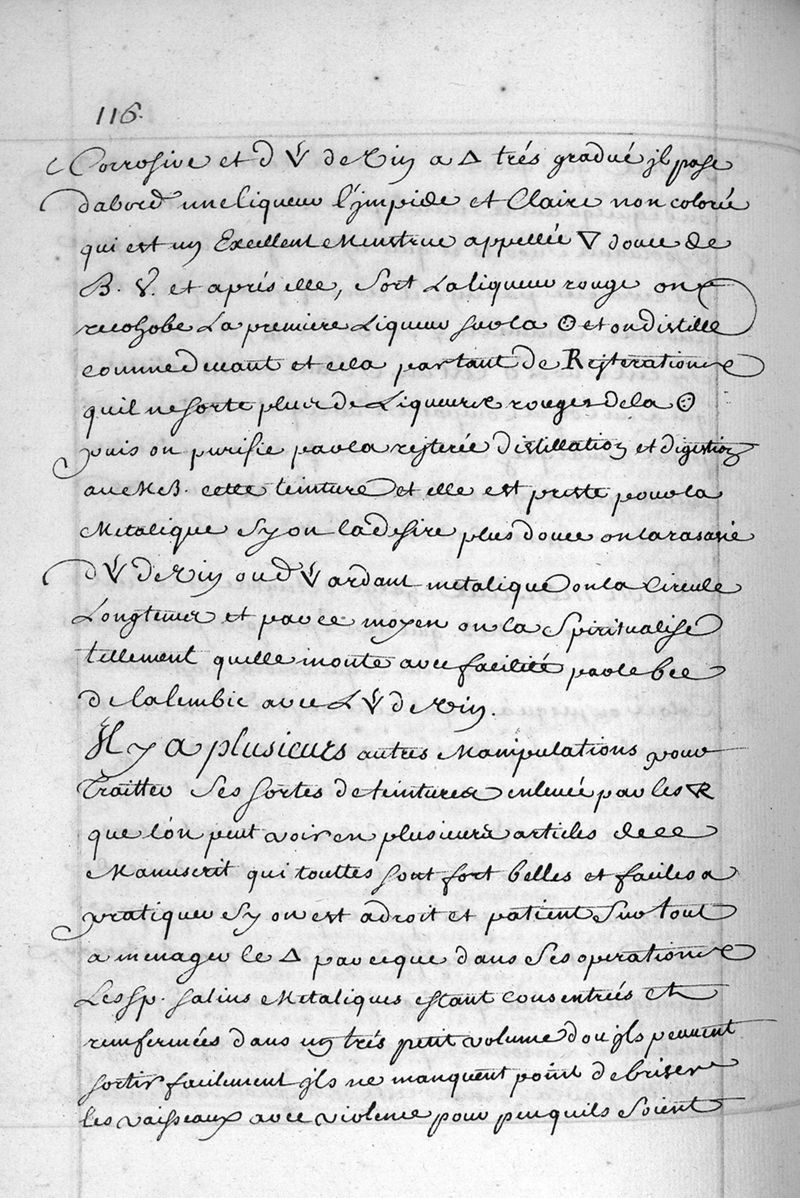 116.
Corrosive et d 🜄 de Vin a 🜂 trés gradué jl pase
dabord une liqueur l'jmpide et Claire non colorée
qui est un Excellent Menstrue appellée 🜄 douce de
B. V. et aprés elle, sort La liqueur rouge on
recohobe La premiere Liqueur sur la ☉ et on distille
comme devant et cela par tant de Rejterations
quil ne sorte plus de Liqueurs rouges de la ☉
puis on purifie par la rejterée distillation et digestion
au MB. cette teinture et elle est preste pour la
Metalique Sy on la desire plus douce on la rasasie
d'🜄 de Vin ou d 🜄 ardant metalique on la Circule
Longtems et par ce moyen on la Spiritualise
tellement quelle monte avec facilité par le bec
de lalembic avec L'🜄 de Vin.
Jl y a plusieurs autres Manipulations pour
Traitter Ses sortes de teintures enlevée par les 🜄R
que l'on peut voir en plusieurs articles de ce
Manuscrit qui touttes sont fort belles et faciles a
pratiquer Sy on est adroit et patient Sur tout
a menager le 🜂 par ceque dans Ses operations
Les Sp. Salins Metaliques estant consentrées et
renfermées dans un trés petit volume dou jls peuvent
sortir facilement jls ne manquent point de briser
les vaisseaux avec violence pour peu quils Soient